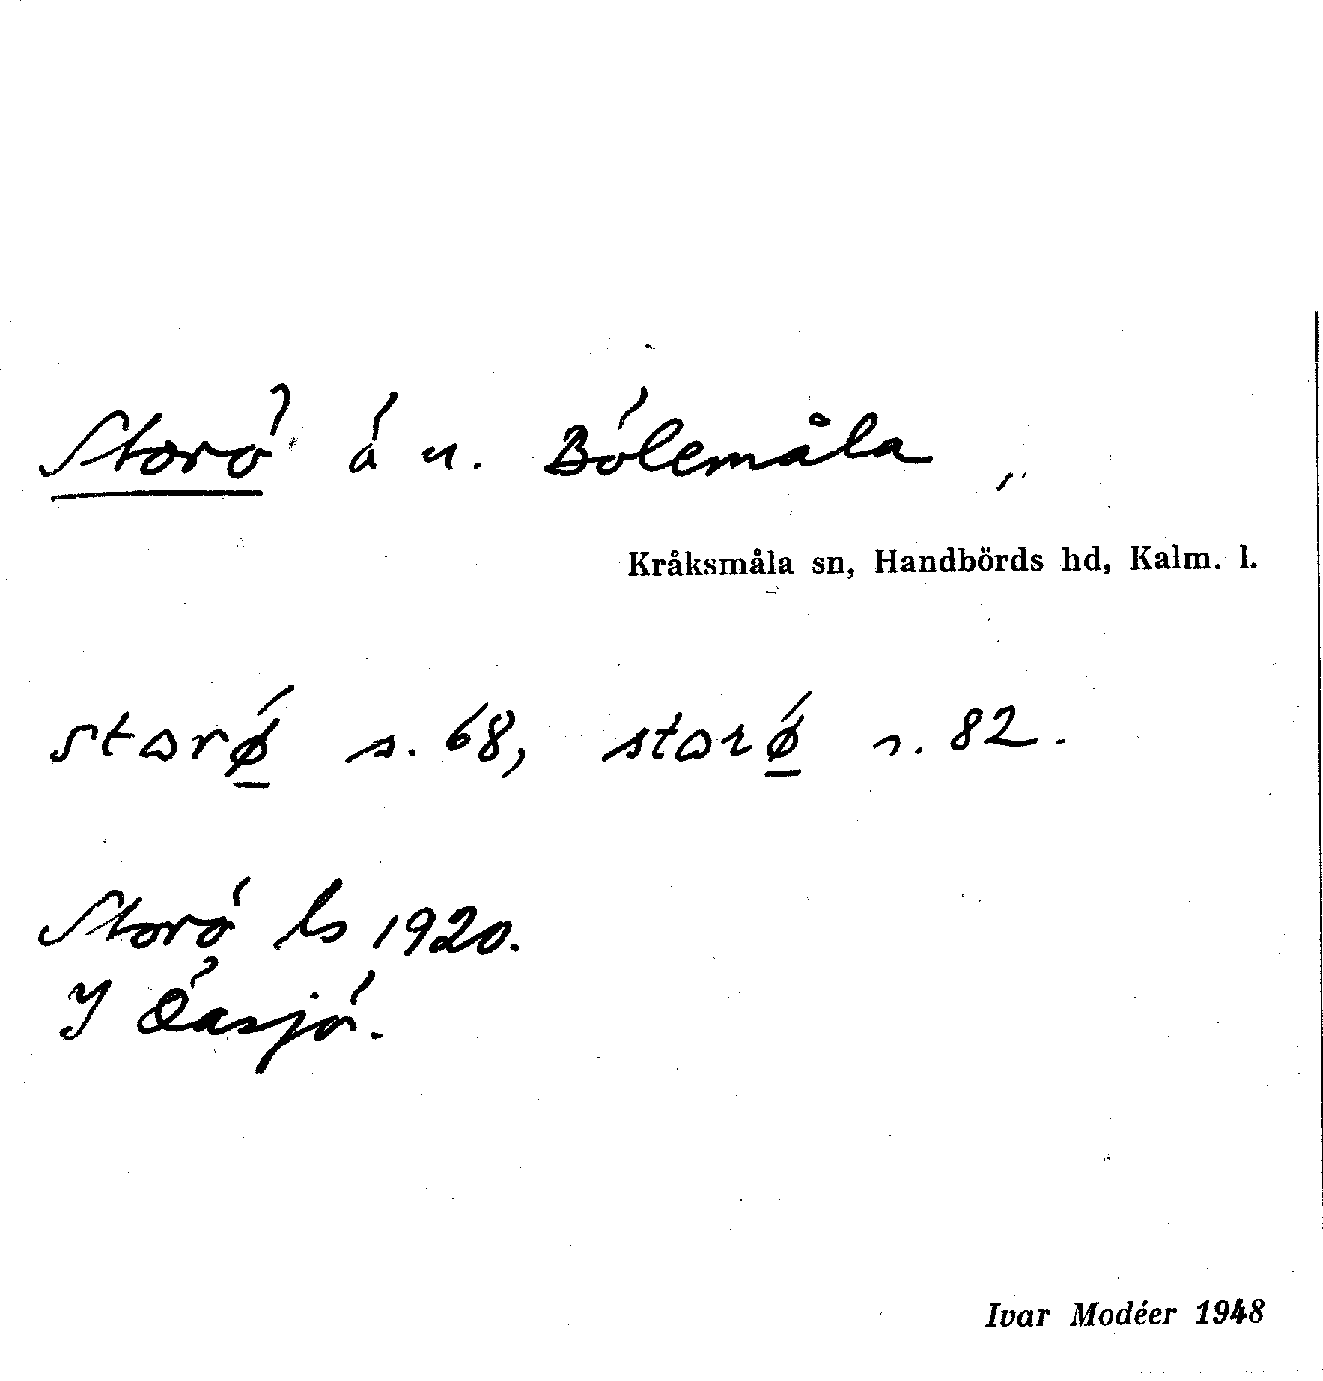 Storö å u. Bölemåla
Kråksmåla sn, Handbörds hd, Kalm. l.
storǿ s. 68, storǿ s. 82.
Storö ls 1920.
I Öasjö.
Ivar Modéer 1948